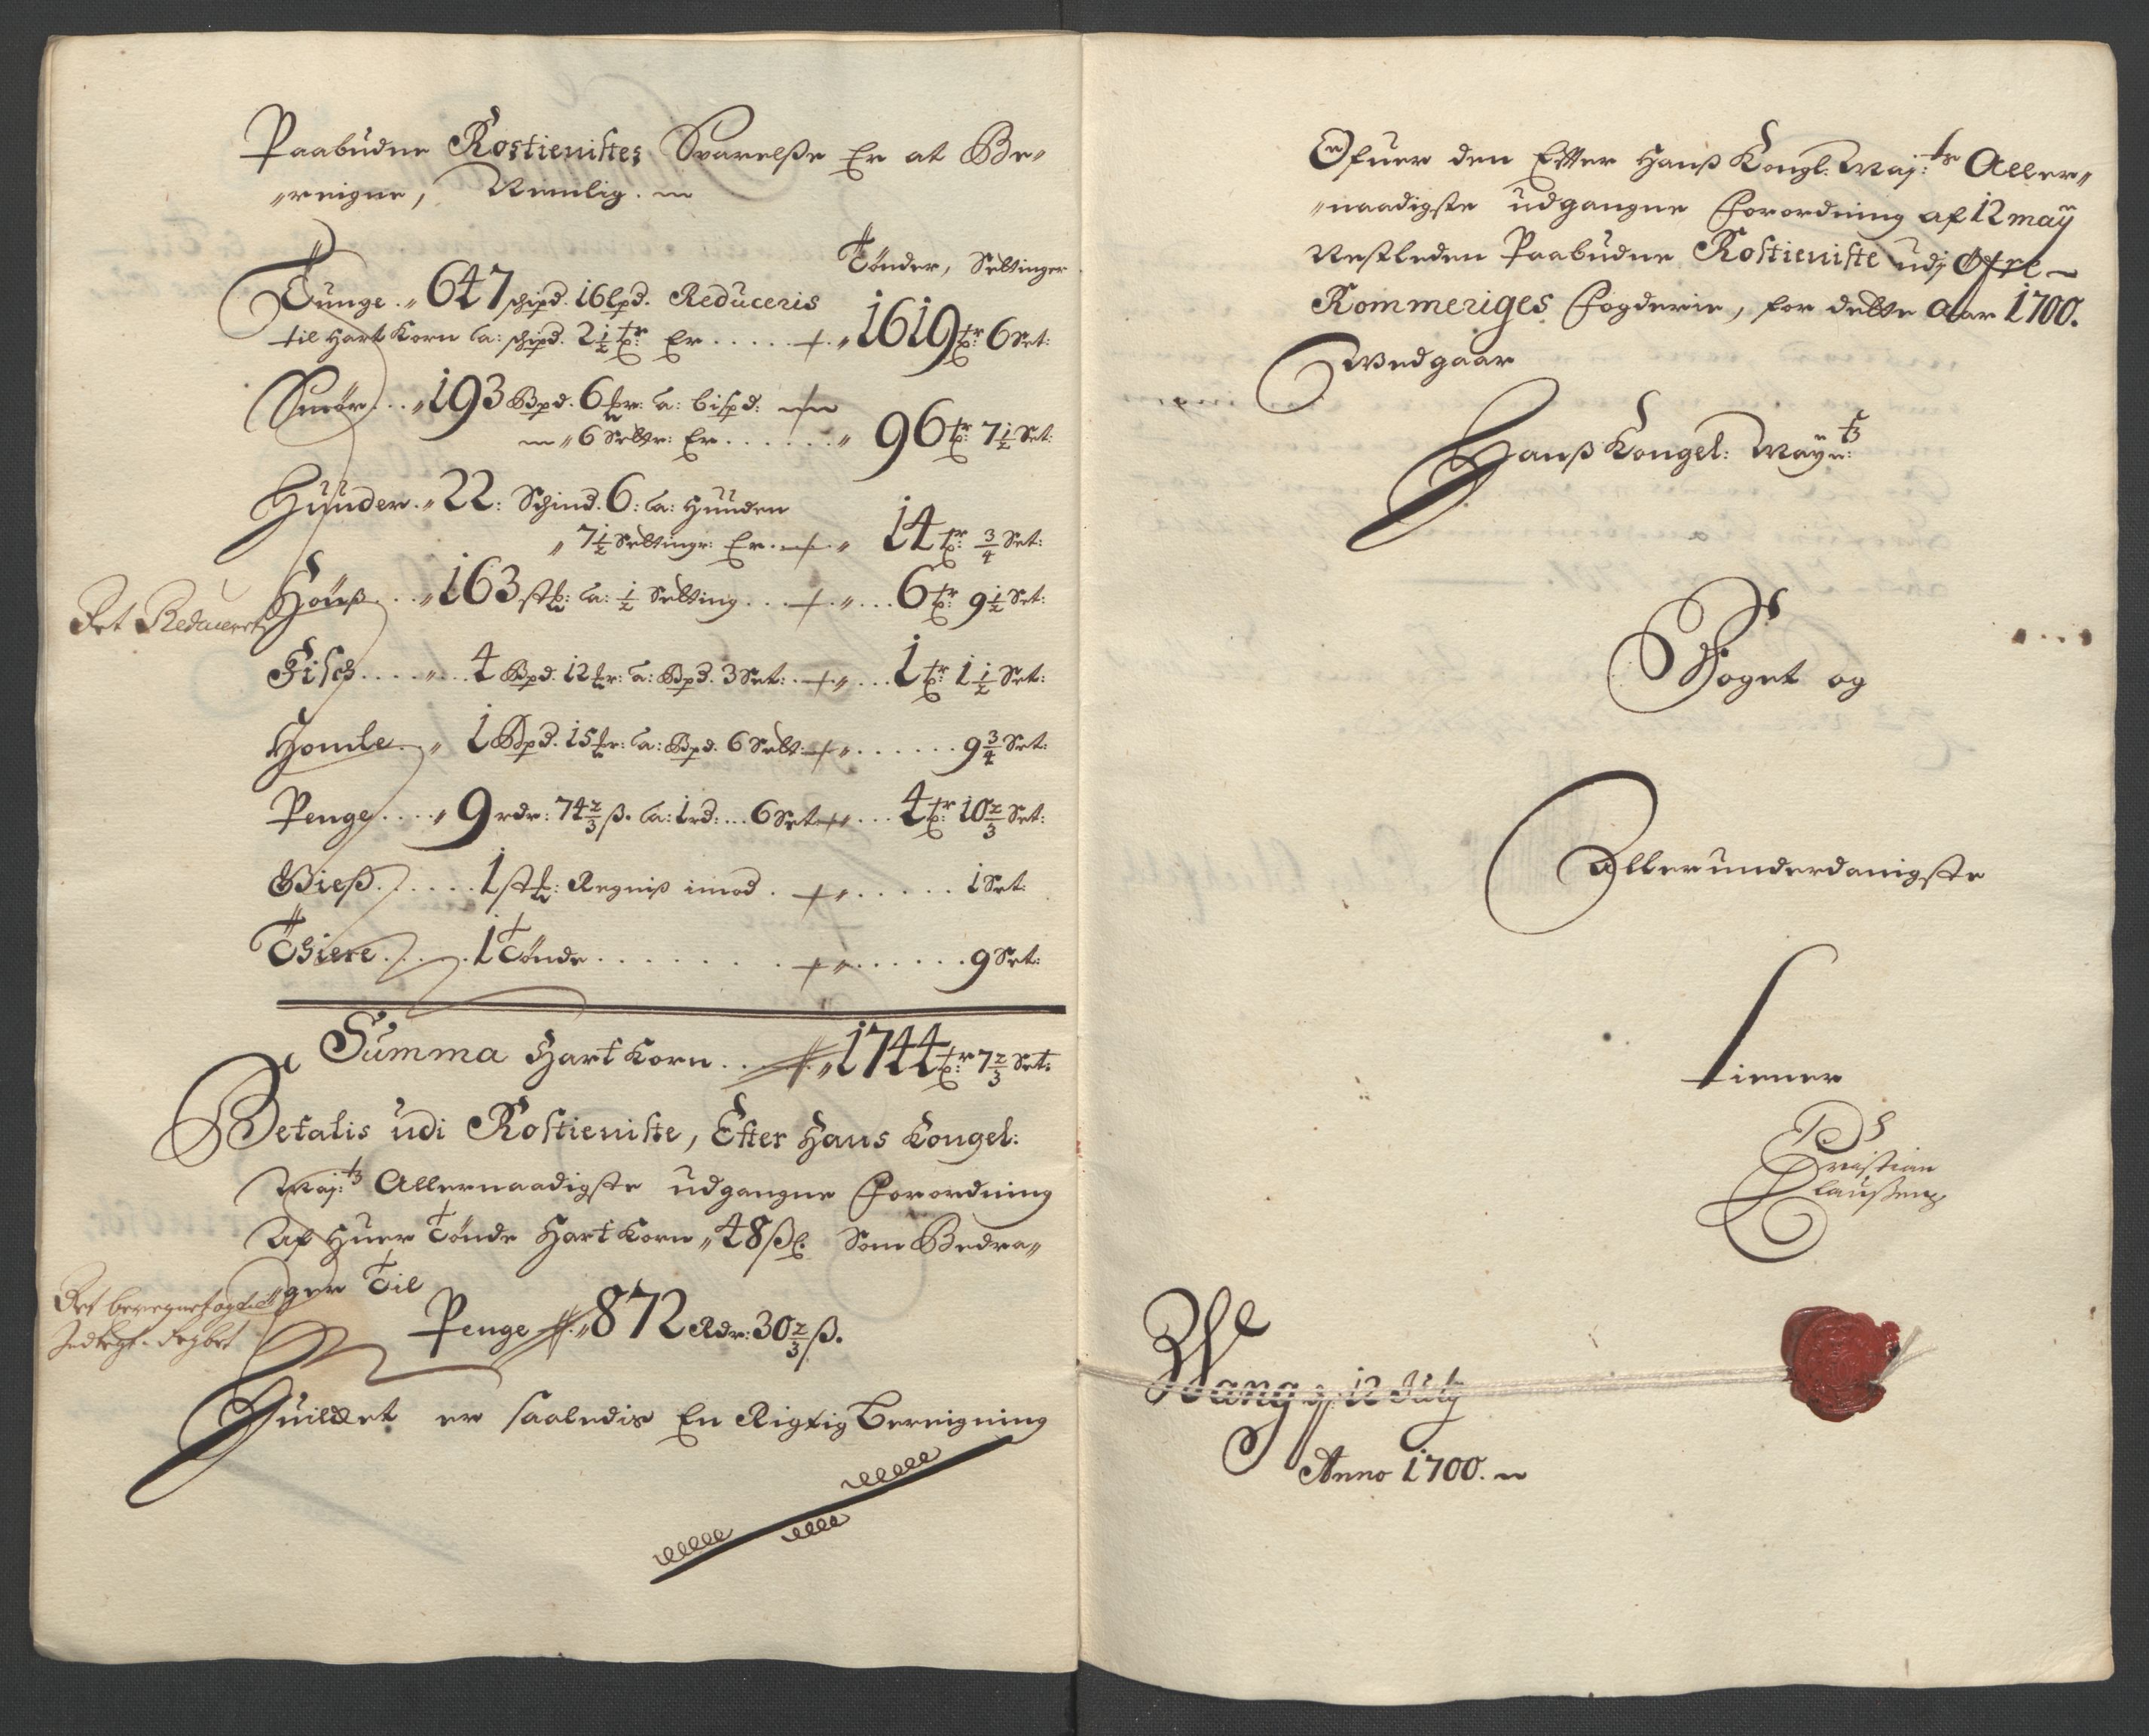 Paabudne Rostienistes Svarelße Er at Be"
"reigne, Nemlig.
Tønder, Settinger
Tunge. " 647 schipd. 16 lpd. Reduceris
til Hart Korn a: schipd. 2½ tr: Er ..... " 1619 tr: 6 Set:
Smør .. " 193 Bpd. 6 mkr: a: bispd:
" 6 Settr: Er ...... " 96 tr: 7½ Set:
Huuder. " 22: Schind. 6: a: Huuden
" 7½ Settingr: Er. " 14 tr: ¾ Set:
Høuß ... " 163 stk: a: ½ Setting ... " ... 6 tr: 9½ Set:
Det Reduceret
Fisch .... " .. 4 Bpd. 12 mkr: a: Bpd. 3 Set: . " ... 1 tr: 1½ Set:
Homle. " 1 Bpd. 15 mkr: a: Bpd. 6 Sett: " ...... 9¾ Set:
Penge .... " 9 rdr: 74⅔ ß. a: 1 rd: ... 6 Set: " ... 4 tr: 10⅔ Set:
Gieß ...... 1 stk: Regnis imod . " ..... 1 Set:
Thiere ..... 1 Tønde ....... " ...... 9 Set:
Summa Hart Korn ... " 1744 tr: 7⅔ Set:
Betalis udi Rostieniste, Efter Hans Kongel:
Maj:ts Allernaadigste udgangne Forordning
Af Huer Tønde Hart Korn " 48 ßl: Som Bedra"
"ger Til
Det beregnet og til
Penge " 872 Rdr: 30⅔ ß.
Huilket er saaledis En Rigtig Bereigning
Ofuer den Efter Hanß Kongl: Maj:ts Aller"
"naadigste udgangne Forordning af 12 maij
Nestleden Paabudne Rostieniste udj Øfre
Rommeriges Fogderie, for dette Aar 1700.
Wedgaar
Hanß Kongel: Mayts:
Foget og
Allerunderdanigste
tiener
Christian
Claußen
Wang d. 12 July
Anno 1700.